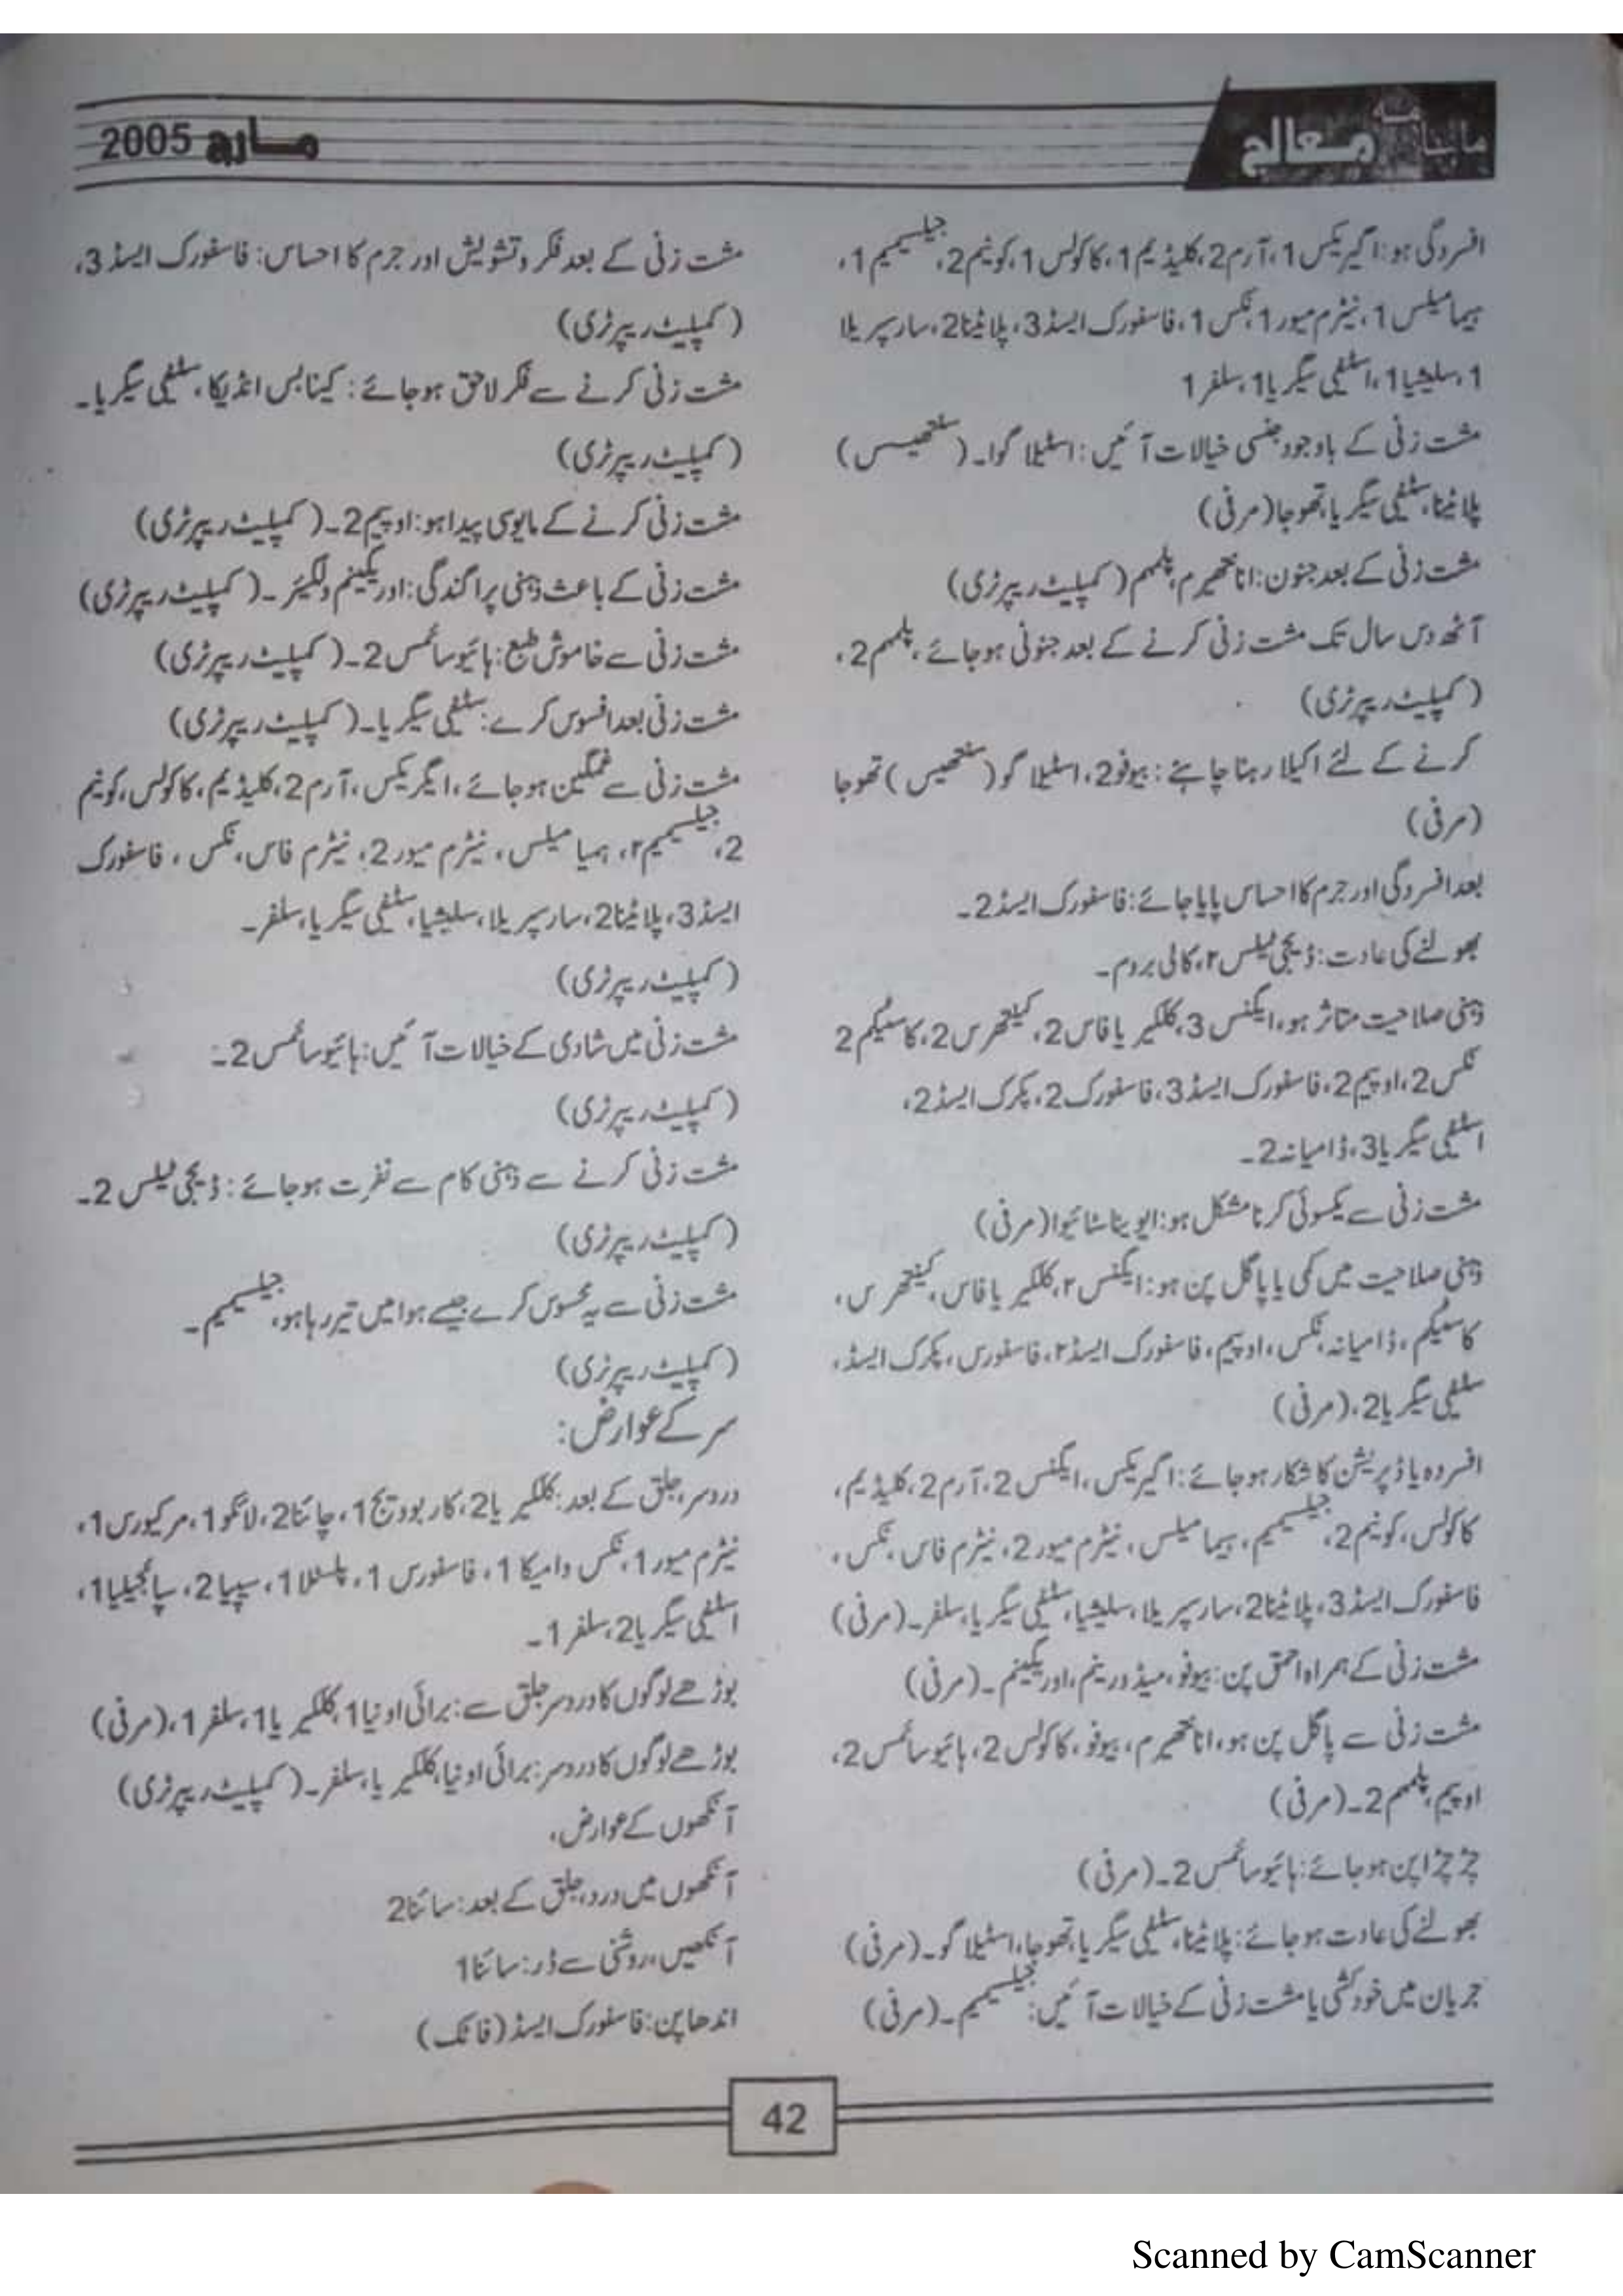 ماہنامہ معالج
مارچ 2005
افسردگی ہو:اگیریکس 1،آرم2،کلیڈیم1،کاکولس1،کونیم2،جیلسیمیم1،
ہیمامیلس1،نیٹرم میور1،نکس1،فاسفورک ایسڈ3،پلاٹینا2،سارسپریلا
1،سلیشیا1،اسٹیفی سیگریا1،سلفر1
مشت زنی کے باوجود جنسی خیالات آئیں:اسٹیلاگوا۔(سنتھیسس)
پلاٹینا،سٹیفی سیگریا،تھوجا(مرفی)
مشت زنی کے بعد جنون:اناتھیرم،پلمبم(کمپلیٹ ریپرٹری)
آٹھ دس سال تک مشت زنی کرنے کے بعد جنونی ہوجائے،پلمبم2،
(کمپلیٹ ریپرٹری)
کرنے کے لئے اکیلا رہنا چاہئے:بیوفو2،اسٹیلاگو(سنتھیسس)تھوجا
(مرفی)
بعد افسردگی اور جرم کا احساس پایا جائے:فاسفورک ایسڈ2۔
بھولنے کی عادت:ڈیجی ٹیلس۲،کالی بروم۔
ذہنی صلاحیت متاثر ہو،ایگنس3،کلکیریا فاس2،کینتھرس2،کاسٹیکم2
نکس2،اوپیم2،فاسفورک ایسڈ3،فاسفورک2،پکرک ایسڈ2،
اسٹیفی سیگریا3،ڈامیانہ2۔
مشت زنی سے یکسوئی کرنا مشکل ہو:ایوینا سٹائیوا(مرفی)
ذہنی صلاحیت میں کمی یا پاگل پن ہو:ایگنس۲،کلکیریا فاس،کینتھرس،
کاسٹیکم،ڈامیانہ،نکس،اوپیم،فاسفورک ایسڈ۲،فاسفورس،پکرک ایسڈ،
سٹیفی سیگریا2،(مرفی)
افسردہ یا ڈپریشن کا شکار ہوجائے:اگیریکس،ایگنس2،آرم2،کلیڈیم،
کاکولس،کونیم2،جیلسیمیم،ہیمامیلس،نیٹرم میور2،نیٹرم فاس،نکس،
فاسفورک ایسڈ3،پلاٹینا2،سارسپریلا،سلیشیا،سٹیفی سیگریا،سلفر۔(مرفی)
مشت زنی کے ہمراہ احمق پن:بیوفو،میڈورینم،اوریگینم۔(مرفی)
مشت زنی سے پاگل پن ہو،اناتھیرم،بیوفو،کاکولس2،ہائیوسائمس2،
اوپیم،پلمبم2۔(مرفی)
چڑچڑا پن ہوجائے:ہائیوسائمس2۔(مرفی)
بھولنے کی عادت ہوجائے:پلاٹینا،سٹیفی سیگریا،تھوجا،اسٹیلاگو۔(مرفی)
جریان میں خودکشی یا مشت زنی کے خیالات آئیں:جیلسیمیم۔(مرفی)
مشت زنی کے بعد فکر و تشویش اور جرم کا احساس:فاسفورک ایسڈ3،
(کمپلیٹ ریپرٹری)
مشت زنی کرنے سے فکر لاحق ہوجائے:کینابس انڈیکا،سٹیفی سیگریا۔
(کمپلیٹ ریپرٹری)
مشت زنی کرنے کے مایوسی پیدا ہو:اوپیم2۔(کمپلیٹ ریپرٹری)
مشت زنی کے باعث ذہنی پراگندگی:اوریگینم ولگیئر۔(کمپلیٹ ریپرٹری)
مشت زنی سے خاموش طبع:ہائیوسائمس2۔(کمپلیٹ ریپرٹری)
مشت زنی بعد افسوس کرے:سٹیفی سیگریا۔(کمپلیٹ ریپرٹری)
مشت زنی سے غمگین ہوجائے،ایگریکس،آرم2،کلیڈیم،کاکولس،کونیم
2،جیلسیمیم۲،ہمیامیلس،نیٹرم میور2،نیٹرم فاس،نکس،فاسفورک
ایسڈ3،پلاٹینا2،سارسپریلا،سلیشیا،سٹیفی سیگریا،سلفر۔
(کمپلیٹ ریپرٹری)
مشت زنی میں شادی کے خیالات آئیں:ہائیوسائمس2۔
(کمپلیٹ ریپرٹری)
مشت زنی کرنے سے ذہنی کام سے نفرت ہوجائے:ڈیجی ٹیلس2۔
(کمپلیٹ ریپرٹری)
مشت زنی سے یہ محسوس کرے جیسے ہوا میں تیر رہا ہو،جیلسیمیم۔
(کمپلیٹ ریپرٹری)
سر کے عوارض:
دردسر،جلق کے بعد:کلکیریا2،کاربوویج1،چائنا2،لائکو1،مرکیورس1،
نیٹرم میور1،نکس وامیکا1،فاسفورس1،پلسٹلا1،سیپیا2،سپائجیلیا1،
اسٹیفی سیگریا2،سلفر1۔
بوڑھے لوگوں کا دردسر جلق سے:برائی اونیا1،کلکیریا1،سلفر1،(مرفی)
بوڑھے لوگوں کا دردسر:برائی اونیا،کلکیریا،سلفر۔(کمپلیٹ ریپرٹری)
آنکھوں کے عوارض،
آنکھوں میں درد،جلق کے بعد:سائنا2
آنکھیں،روشنی سے ڈر:سائنا1
اندھا پن:فاسفورک ایسڈ(فاتک)
42
Scanned by CamScanner